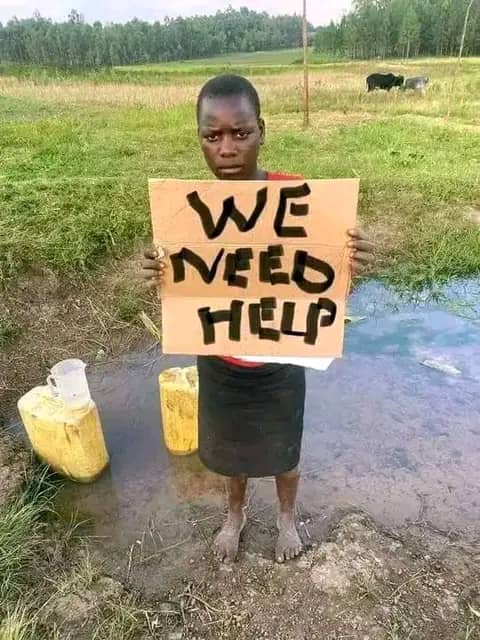 WE
NEED
HELP